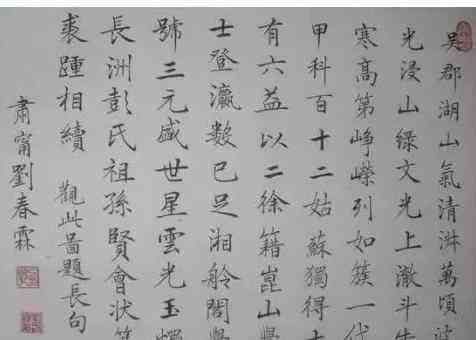 吳郡湖山氣清淑萬頃波
光浸山綠文光上激斗牛
寒高第崢嶸列如簇一代
甲科百十二姑蘇獨得
有六益以二徐籍崑山
士登瀛數已足湘舲閣
號三元盛世星雲光玉燭
長洲彭氏祖孫賢會狀
裘踵相續 觀此圖題長句
肅甯劉春霖